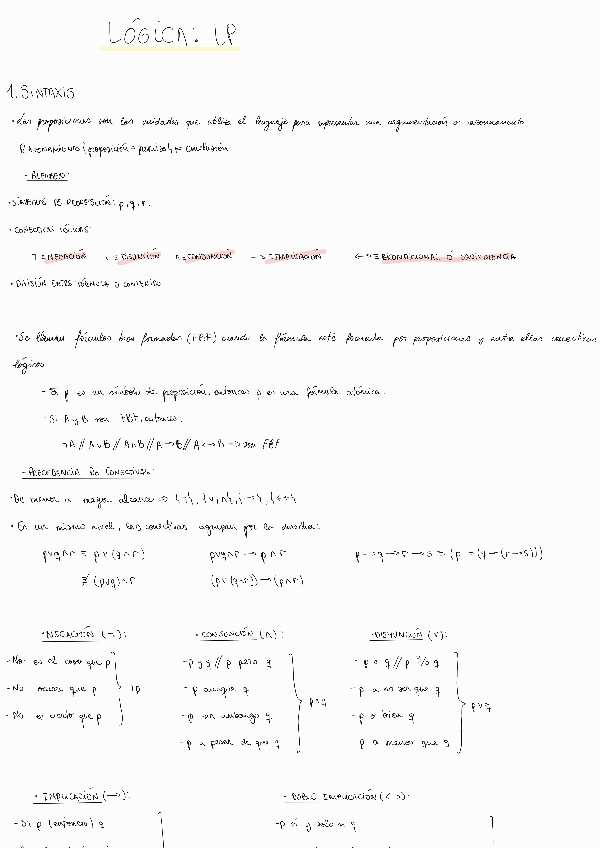 LÓGICA: LP
1. SINTAXIS
· Las proposiciones son las unidades que utiliza el lenguaje para representar una argumentación o razonamiento
RAZONAMIENTO { proposición = premisa } + conclusión
- ALFABETO:
· SÍMBOLOS DE PROPOSICIÓN: p, q, r..
· CONECTIVAS LÓGICAS:
¬ = NEGACIÓN ∨ = DISYUNCIÓN ∧ = CONJUNCIÓN → = IMPLICACIÓN ↔ = BICONDICIONAL O EQUIVALENCIA
· DIVISIÓN ENTRE FÓRMULA O CONTENIDO
· Se llaman fórmulas bien formadas (FBF) cuando la fórmula está formada por proposiciones y entre ellas conectivas
lógicas
- Si p es un símbolo de proposición, entonces p es una fórmula atómica.
- Si A y B son FBF, entonces,
¬A // A∨B // A∧B // A→B // A↔B → son FBF
- PRECEDENCIA DE CONECTIVAS:
· De menor a mayor alcance ⇒ {¬}, {∨,∧}, {→}, {↔}
· En un mismo nivel, las conectivas agrupan por la derecha:
p∨q∧r ≡ p∨(q∧r) p∨q∧r → p∧r p→q→r→s ≡ (p→(q→(r→s)))
≢ (p∨q)∧r (p∨(q∧r))→(p∧r)
· NEGACIÓN (¬): · CONJUNCIÓN (∧): · DISYUNCIÓN (∨):
- No es el caso que p - p y q // p pero q - p o q // p y/o q
- No ocurre que p ¬p - p aunque q - p a no ser que q
- No es cierto que p - p sin embargo q p∧q - p o bien q p∨q
- p a pesar de que q p a menos que q
· IMPLICACIÓN (→): · DOBLE IMPLICACIÓN (↔):
- Si p (entonces) q - p si y solo si q